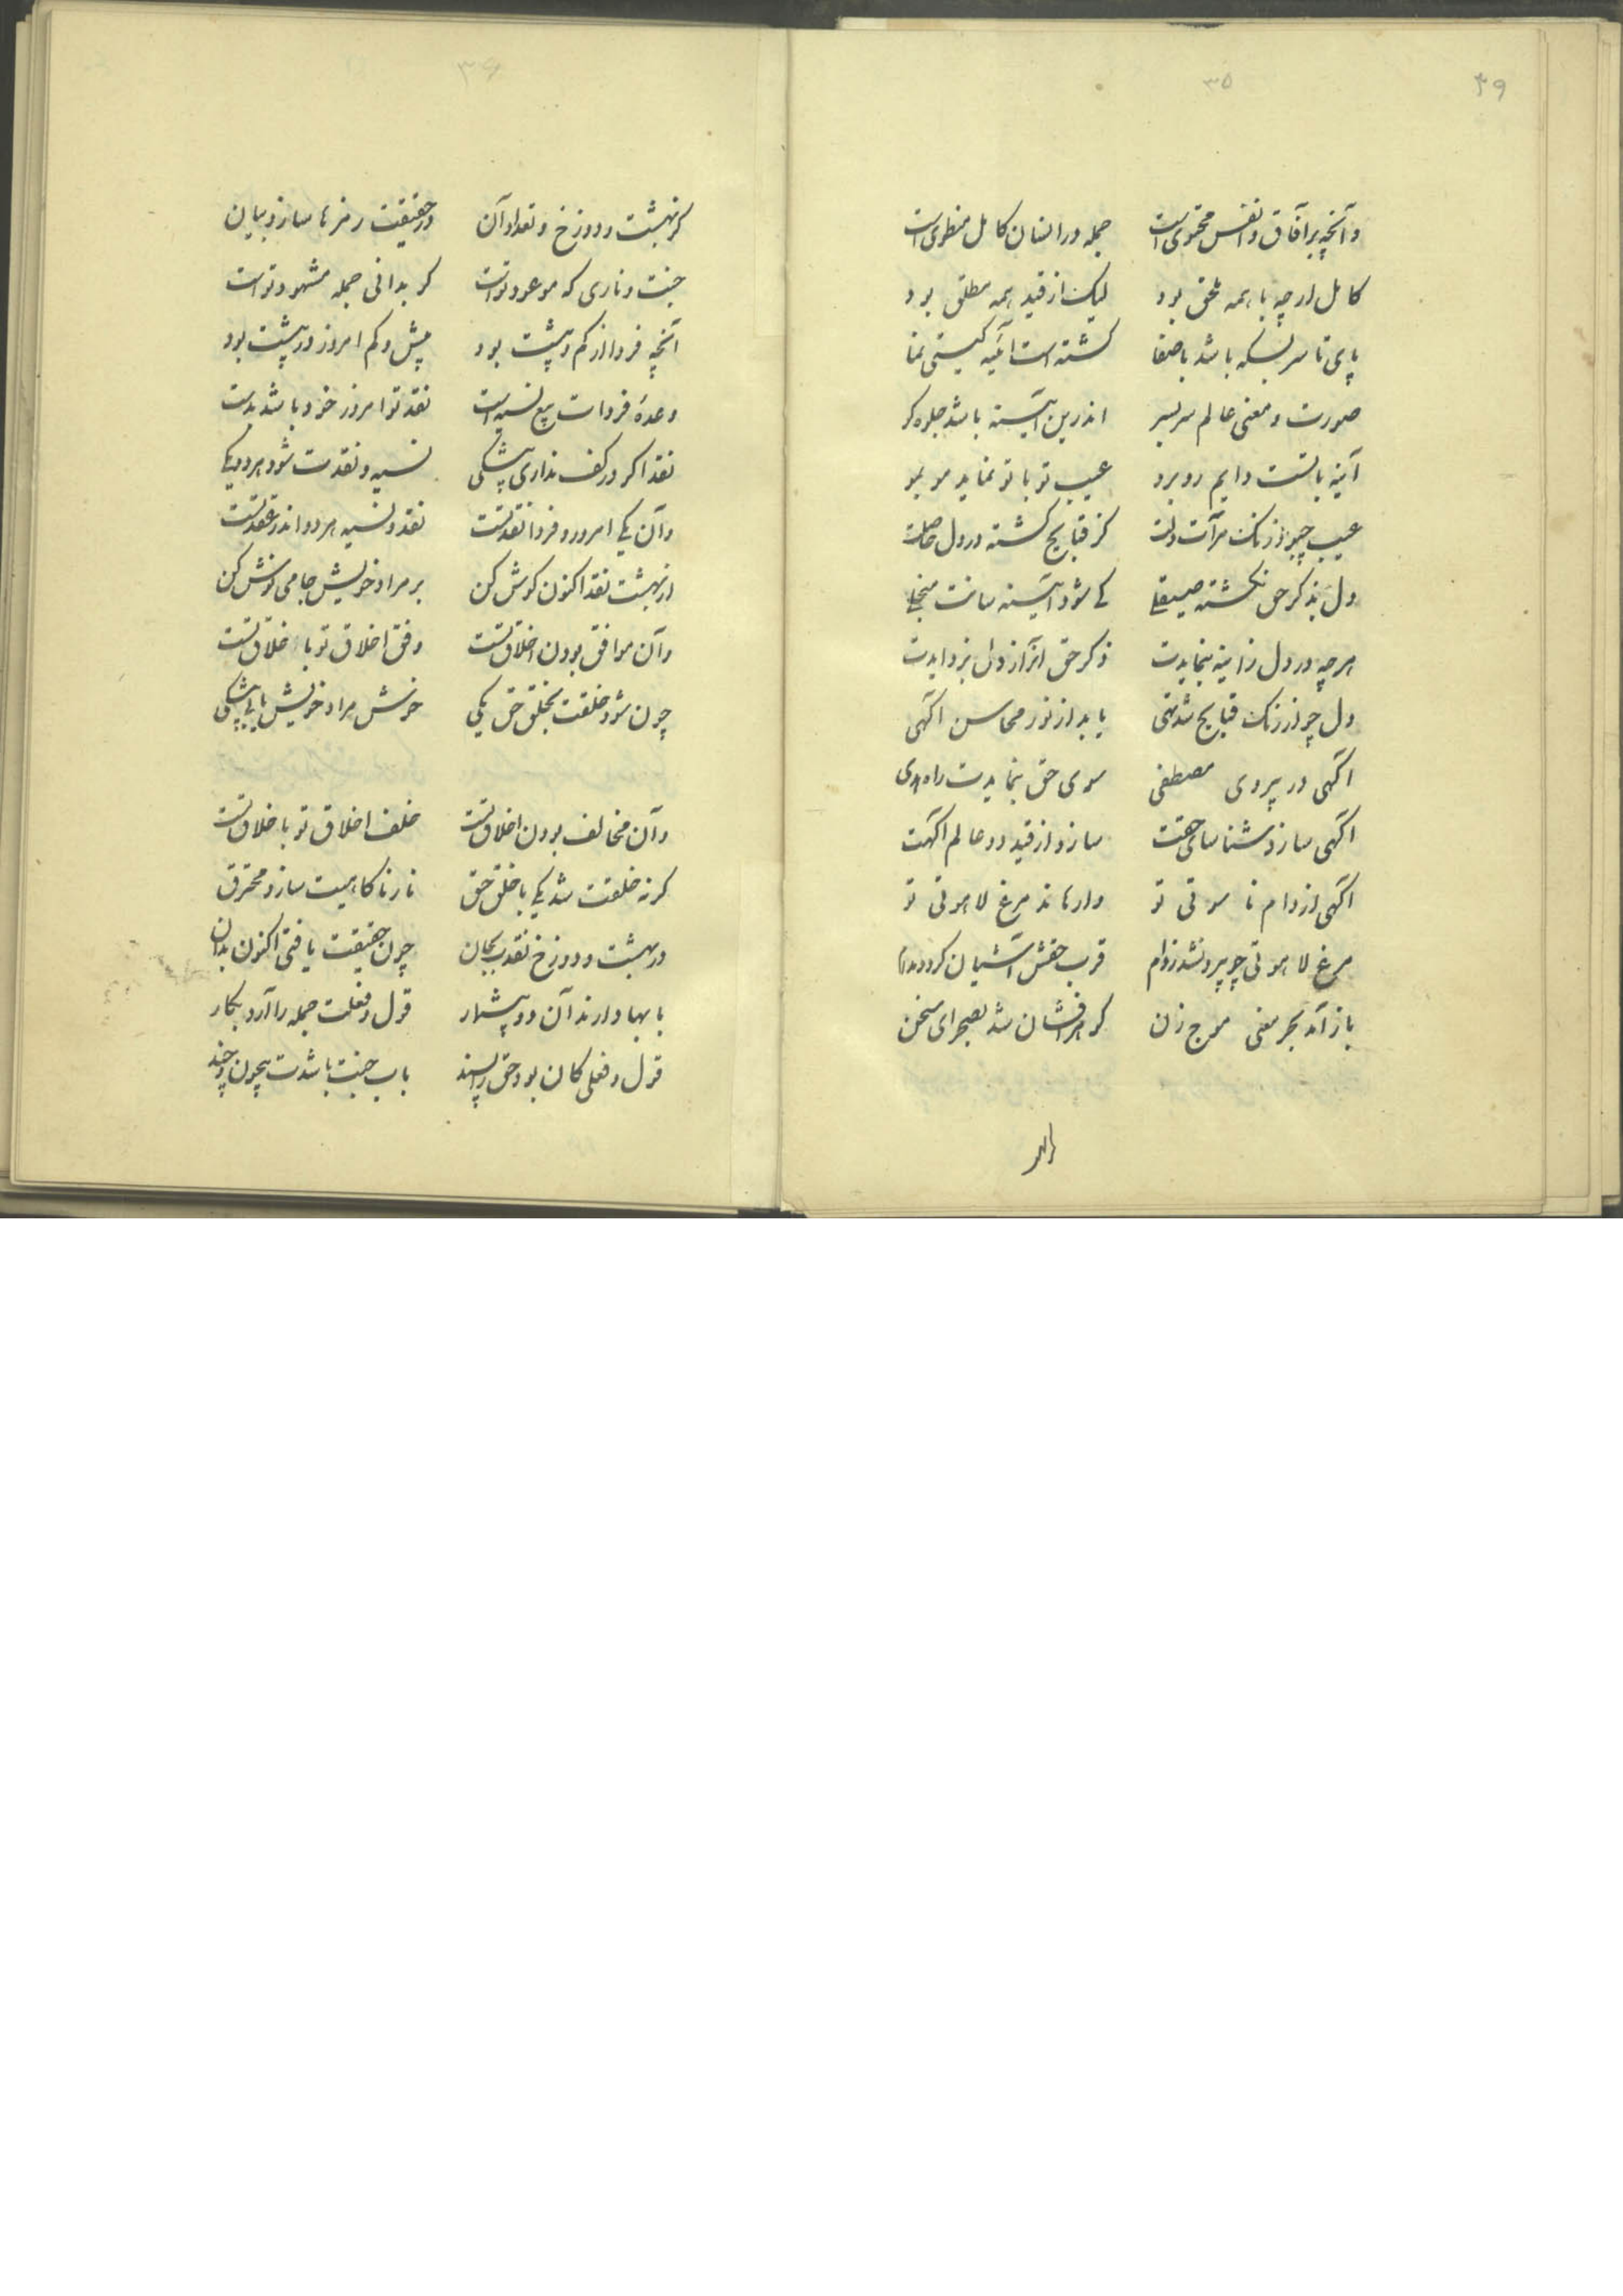 ۴۹
۳۵
وآنچه بر آفاق و انفس محتوی است جمله در انسان کامل منطوی است
کامل ار چه با همه ملحق بود لیک از قید همه مطلق بود
پای تا سر بسکه باشد با صفا گشته است آئینه گیتی نما
صورت و معنی عالم سر بسر اندرین آئینه باشد جلوه گر
آینه با تست دایم روبرو عیب تو با تو نماید مو بمو
عیب چبود زنگ مرآت دلت کز قبایح گشته در دل حاصلت
دل بذکر حق نگشته صیقلی کی شود آئینه سانت منجلی
هر چه در دل زاینه بنمایدت ذکر حق آنرا ز دل بزدایدت
دل چو از زنگ قبایح شد تهی یابد از نور محاسن آگهی
آگهی در پیروی مصطفی سوی حق بنمایدت راه هدی
آگهی سازد شناسای حقت سازد از قید دو عالم آگهت
آگهی از دام ناسوتی تو وارهاند مرغ لاهوتی تو
مرغ لاهوتی چو بیرون شد ز دام قرب حقش آشیان گردد مدام
باز آمد بحر معنی موج زن گوهر افشان شد بصحرای سخن
۳۶
کز بهشت و دوزخ و تعداد آن در حقیقت رمزها سازد بیان
جنت و ناری که موعود تو است گر بدانی جمله مشهود تو است
آنچه فردا از کم و بیشت بود بیش و کم امروز در پیشت بود
وعدهٔ فردات بیع نسیه است نقد تو امروز خود باشد بدست
نقد اگر در کف نداری بیشکی نسیه و نقدت شود هر دو یکی
وآن یکی امروز و فردا نقد تست نقد و نسیه هر دو اندر عقد تست
از بهشت نقد اکنون گوش کن بر مراد خویش جامی نوش کن
وآن موافق بودن اخلاق تست وفق اخلاق تو با خلاق تست
چون شود خلقت بخلق حق یکی خوش مراد خویش یابی بیشکی
وآن مخالف بودن اخلاق تست خلف اخلاق تو با خلاق تست
گر نه خلقت شد یکی با خلق حق نار ناکامیت سازد محترق
در بهشت و دوزخ نقد بجان چون حقیقت یافتی اکنون بدان
بابها دارند آن دو بیشمار قول و فعلت جمله را آرد بکار
قول و فعلی کان بود حق را پسند باب جنت باشدت بیچون و چند